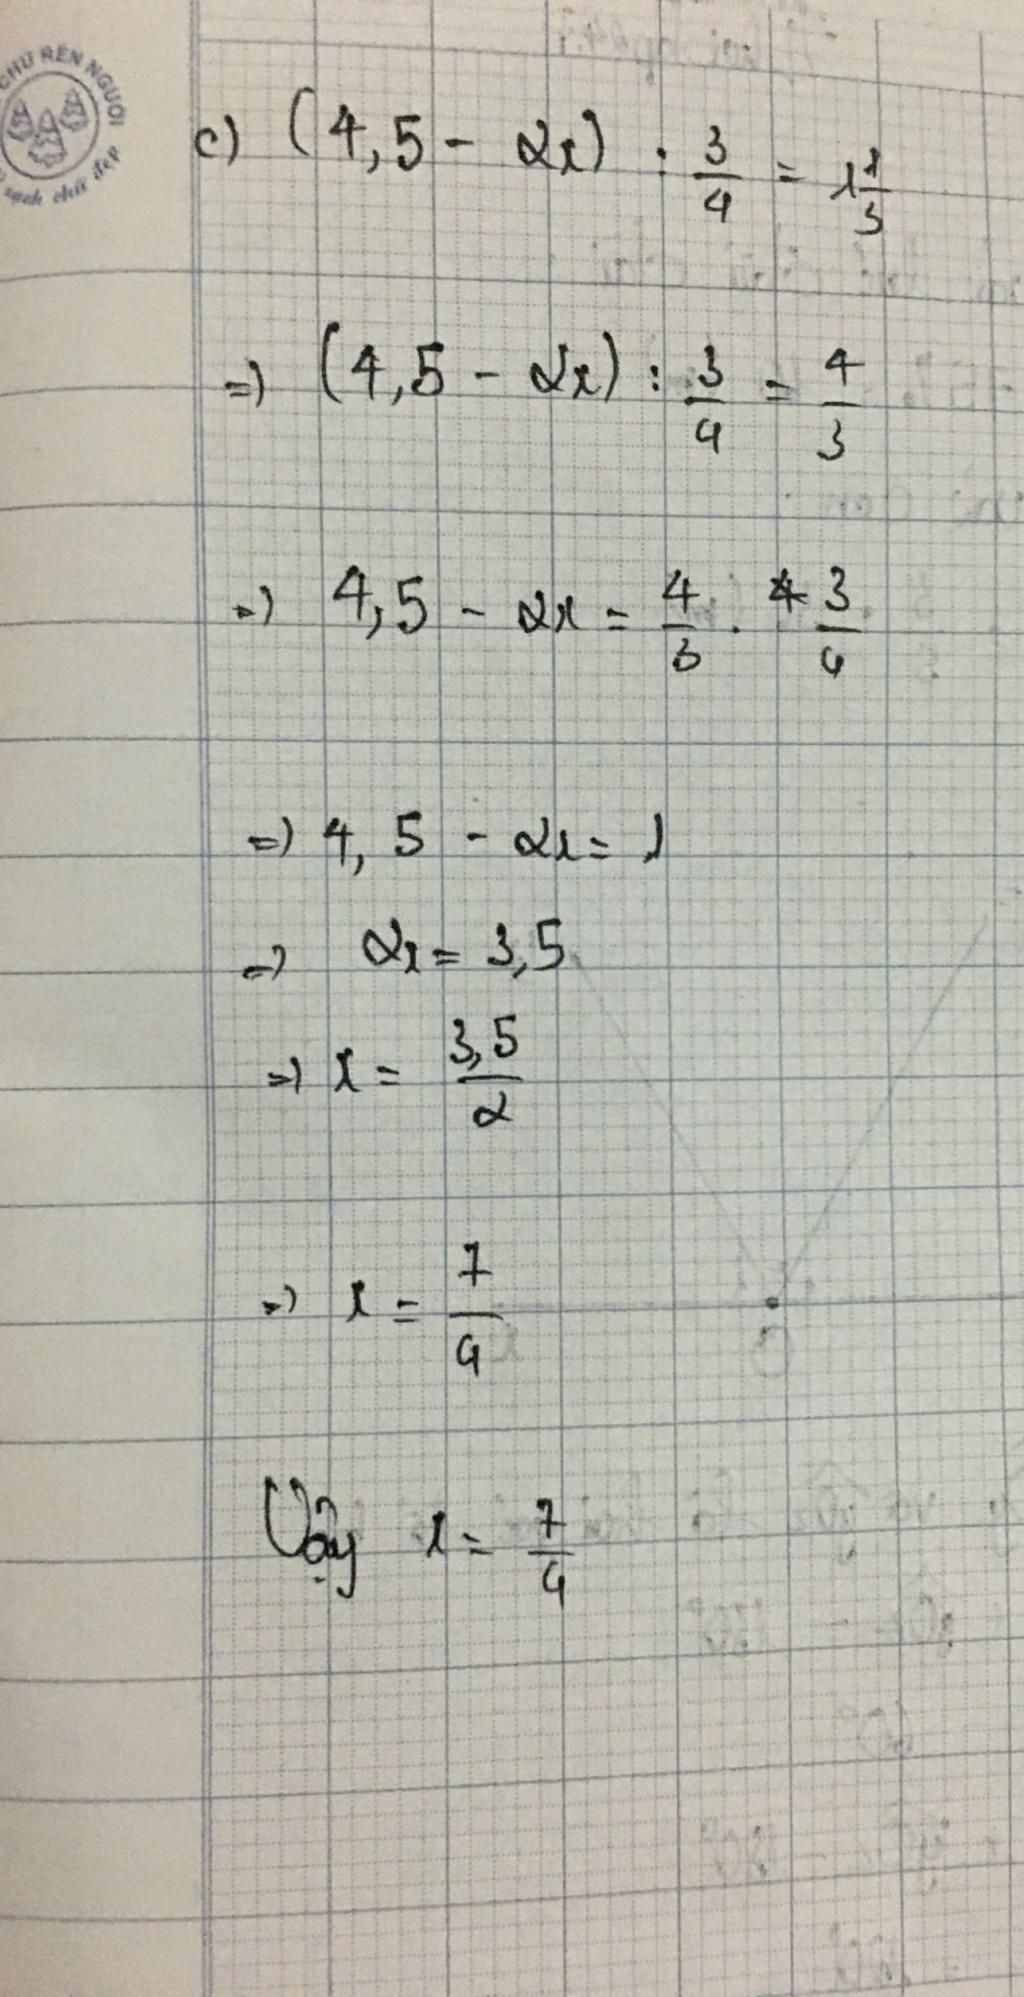 CHỮ RÈN NGƯỜI
sạch chữ đẹp
c) (4,5 - 2x) : 3/4 = 1 1/3
=) (4,5 - 2x) : 3/4 = 4/3
=) 4,5 - 2x = 4/3 . 3/4
=) 4,5 - 2x = 1
=) 2x = 3,5
=) x = 3,5/2
=) x = 7/4
Vậy x = 7/4